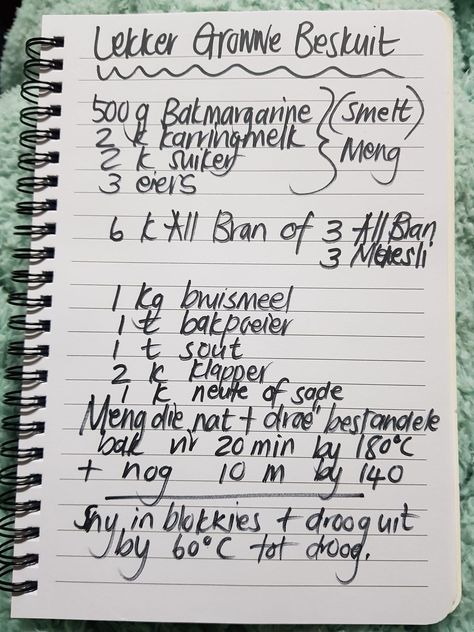 Lekker Growwe Beskuit
500 g Bakmargarine (smelt)
2 k karringmelk
2 k suiker Meng
3 eiers
6 k All Bran of 3 All Bran
3 Muesli
1 kg bruismeel
1 t bakpoeier
1 t sout
2 k klapper
1 k neute of sade
Meng die nat + droë bestandele
bak vir 20 min by 180°C
+ nog 10 m by 140
Sny in blokkies + droog uit
by 60°C tot droog.